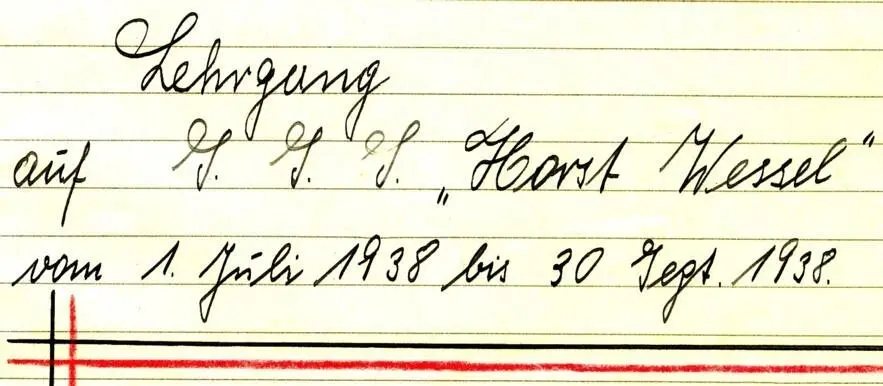 Lehrgang
auf S. S. S. „Horst Wessel"
vom 1. Juli 1938 bis 30 Sept. 1938.